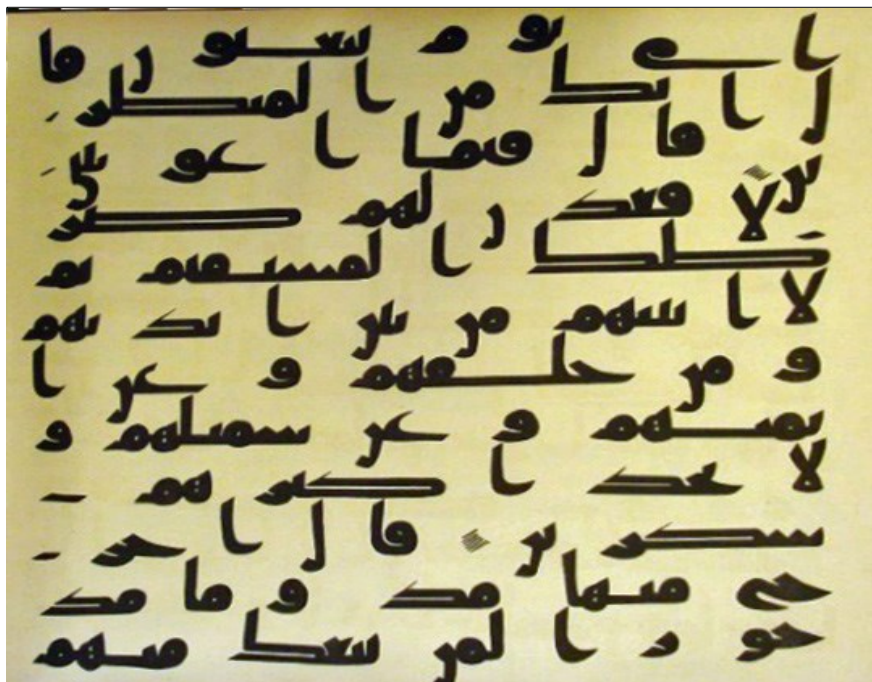 ا لى يو م يبعثو ن قا
ل ا نك من ا لمنظر
ين قا ل فبما ا غو يتن
ى لا قعد ن لهم صر
طك ا لمستقيم ثم
لا تينهم من بين ا يد يهم
و من خلفهم و عن ا
يمنهم و عن شمئلهم و
لا تجد ا كثر هم
شكر ين قا ل ا خر
ج منها مذ و ما مد
حو ر ا لمن تبعك منهم